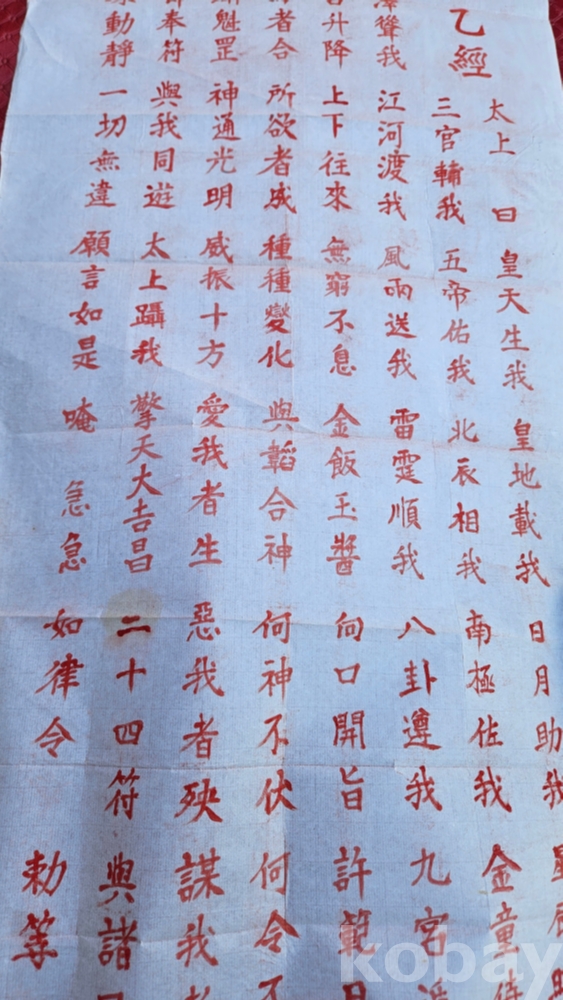 乙經 太上 曰 皇天生我 皇地載我 日月助我
三官輔我 五帝佑我 北辰相我 南極佐我 金童侍
聳我 江河渡我 風雨送我 雷霆順我 八卦遵我 九宮
升降 上下往來 無窮不息 金飯玉醬 向口開旨 許範
者合 所欲者成 種種變化 與韜合神 何神不伏 何令不
魁罡 神通光明 威振十方 愛我者生 惡我者殃 謀我
奉符 與我同遊 太上躡我 擎天大吉昌 二十四符 與諸
動靜 一切無違 願言如是 唵 急急 如律令 勅等
kobay